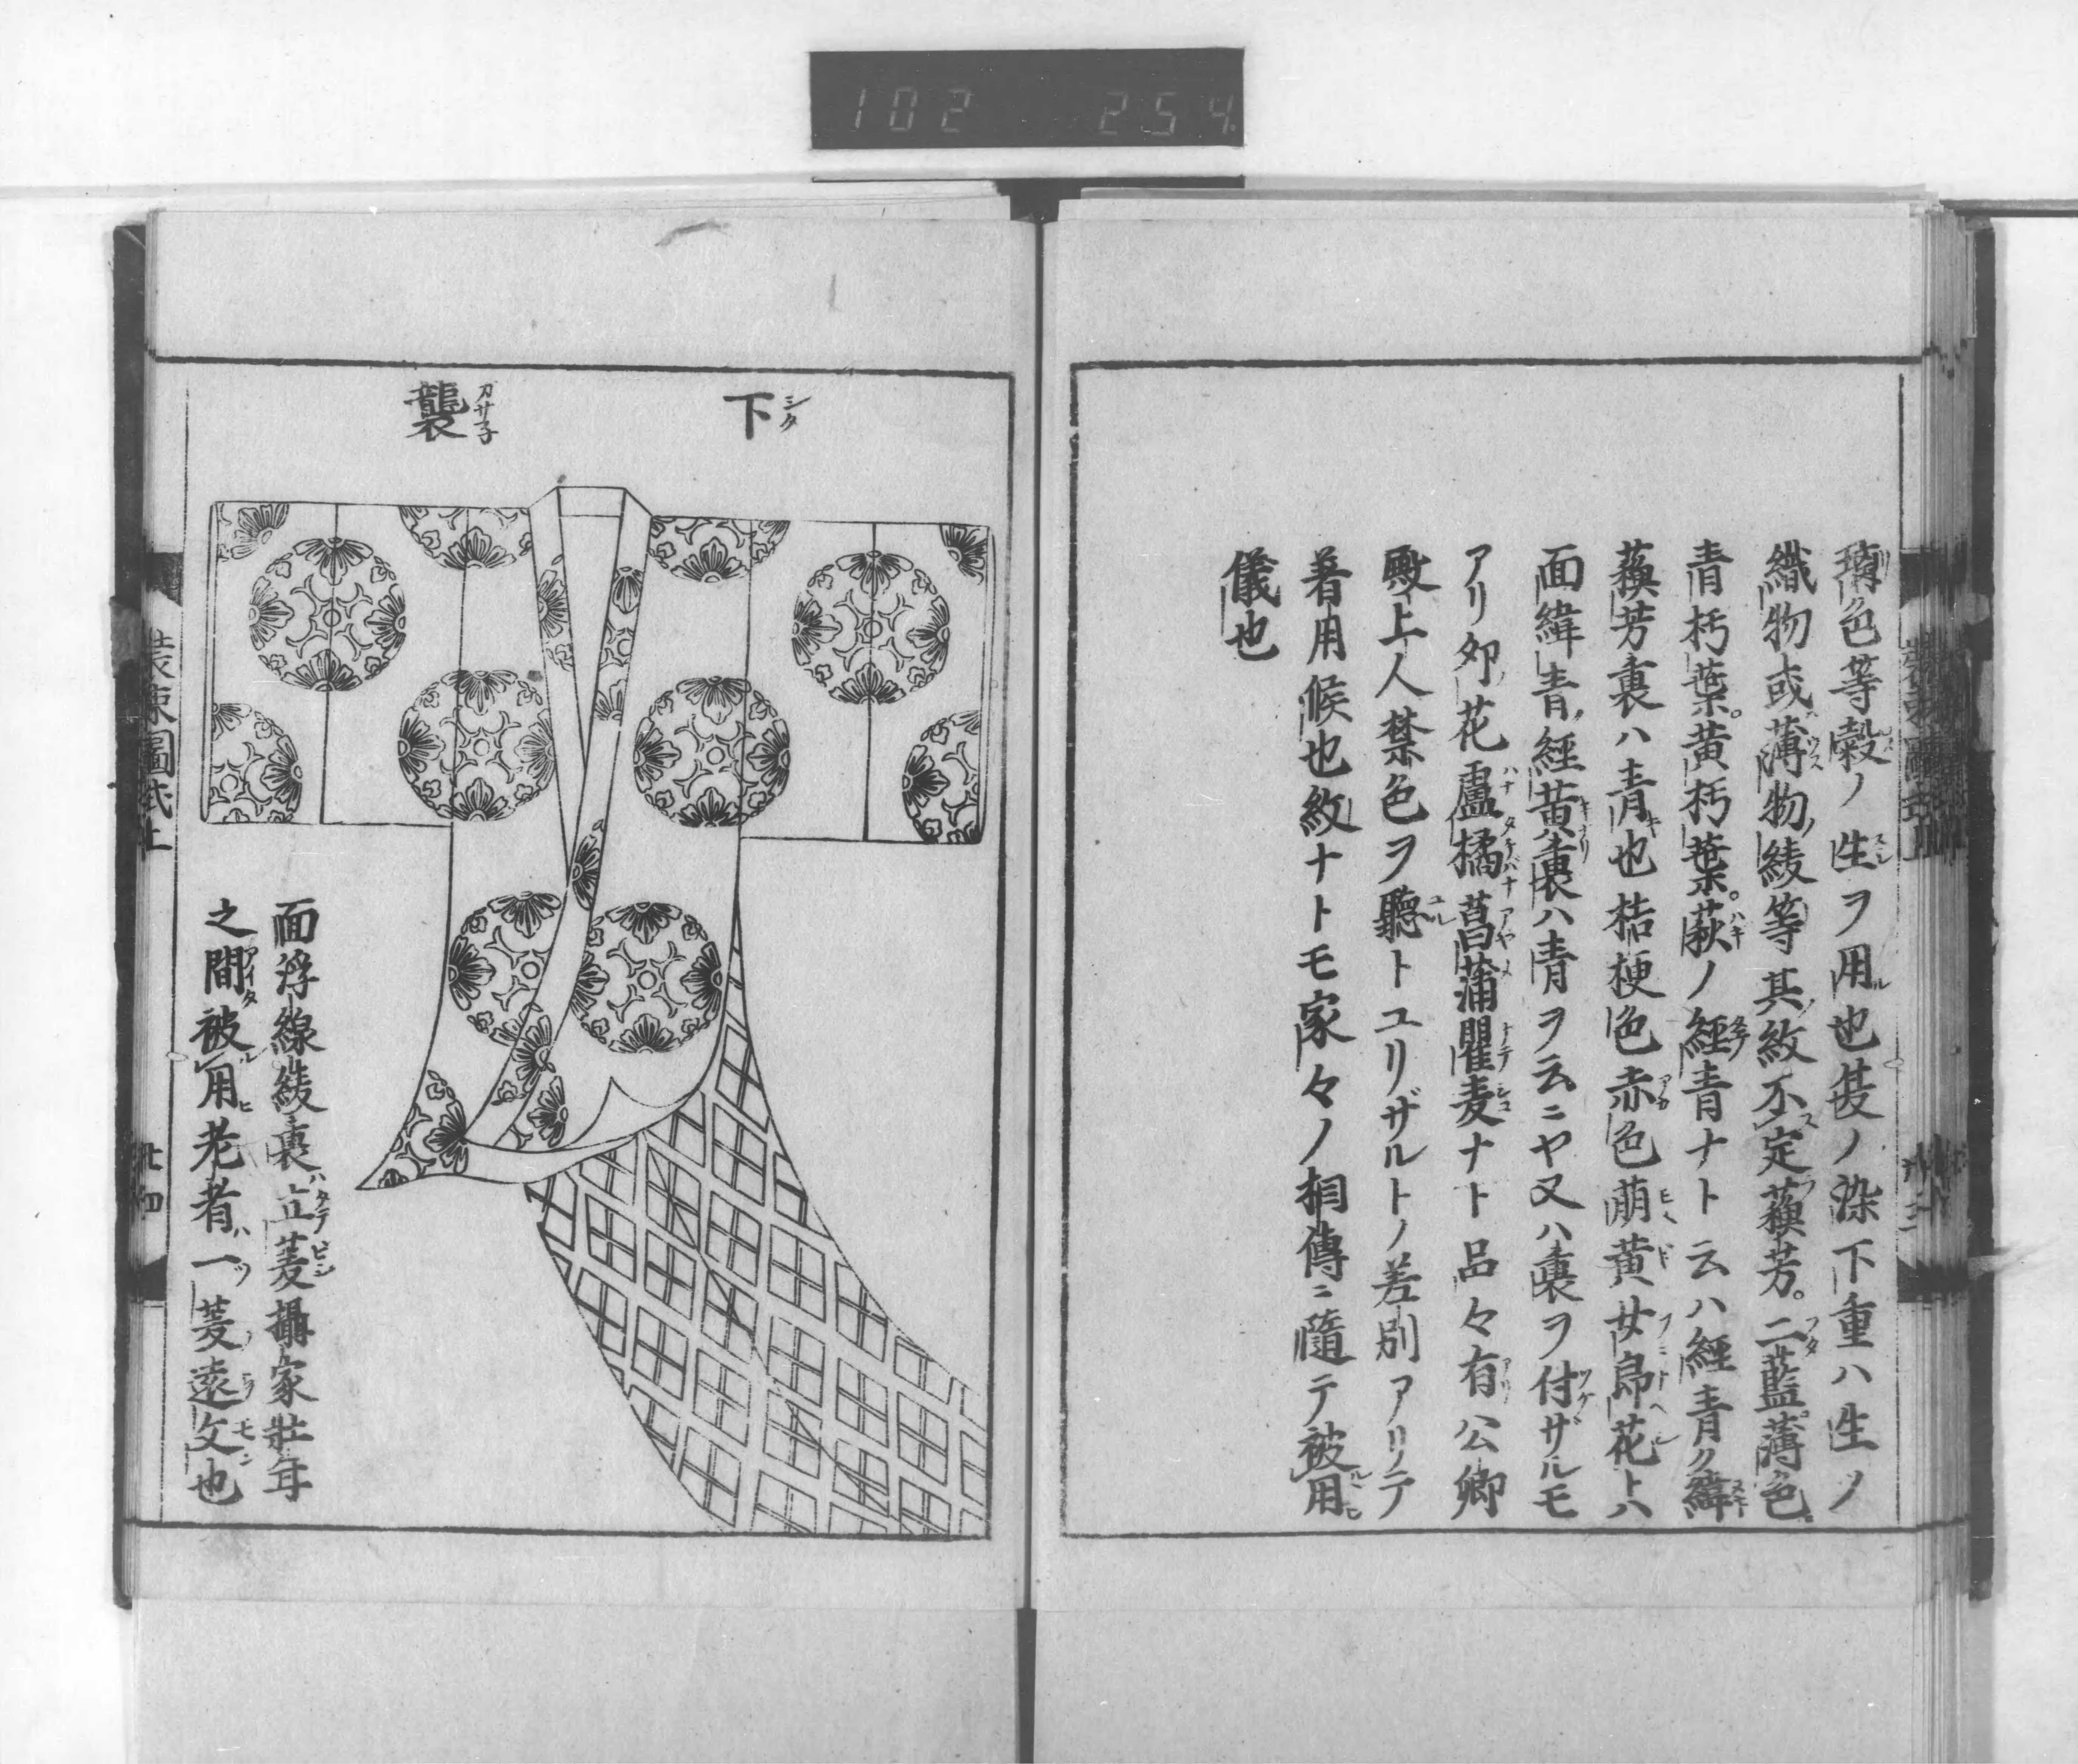 102 254
瑇色等縠ノ生ヲ用也夏ノ染下重ハ生ノ
織物或薄物綾等其紋不定蘓芳。二藍薄色。
青朽葉。黄朽葉。萩ノ經青ナト云ハ經青ク緯
蘓芳裏ハ青也桔梗色赤色萠黄女郎花トハ
面緯青經黄裏ハ青ヲ云ニヤ又ハ裏ヲ付ザルモ
アリ夘花盧橘菖蒲瞿麦ナト品々有公卿
殿上人禁色ヲ聽トユリザルトノ差別アリテ
着用候也紋ナトモ家々ノ相傳ニ隨テ被用
儀也
下
襲
面浮線綾裏ハ立菱攝家壯年
之間被用老者ハ一菱遠文也
装束圖式上
廿四